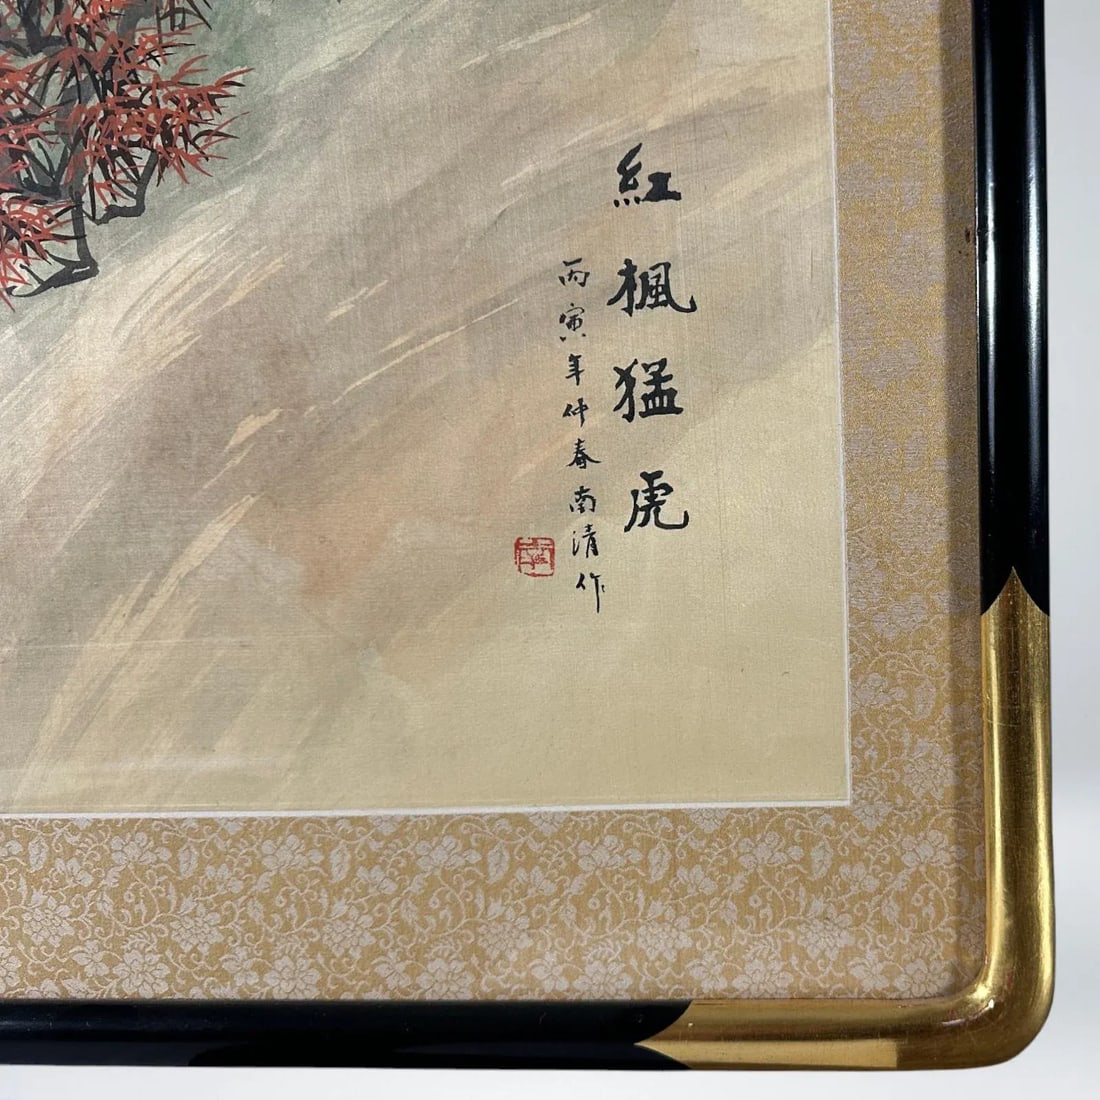 紅楓猛虎
丙寅年仲春南清作